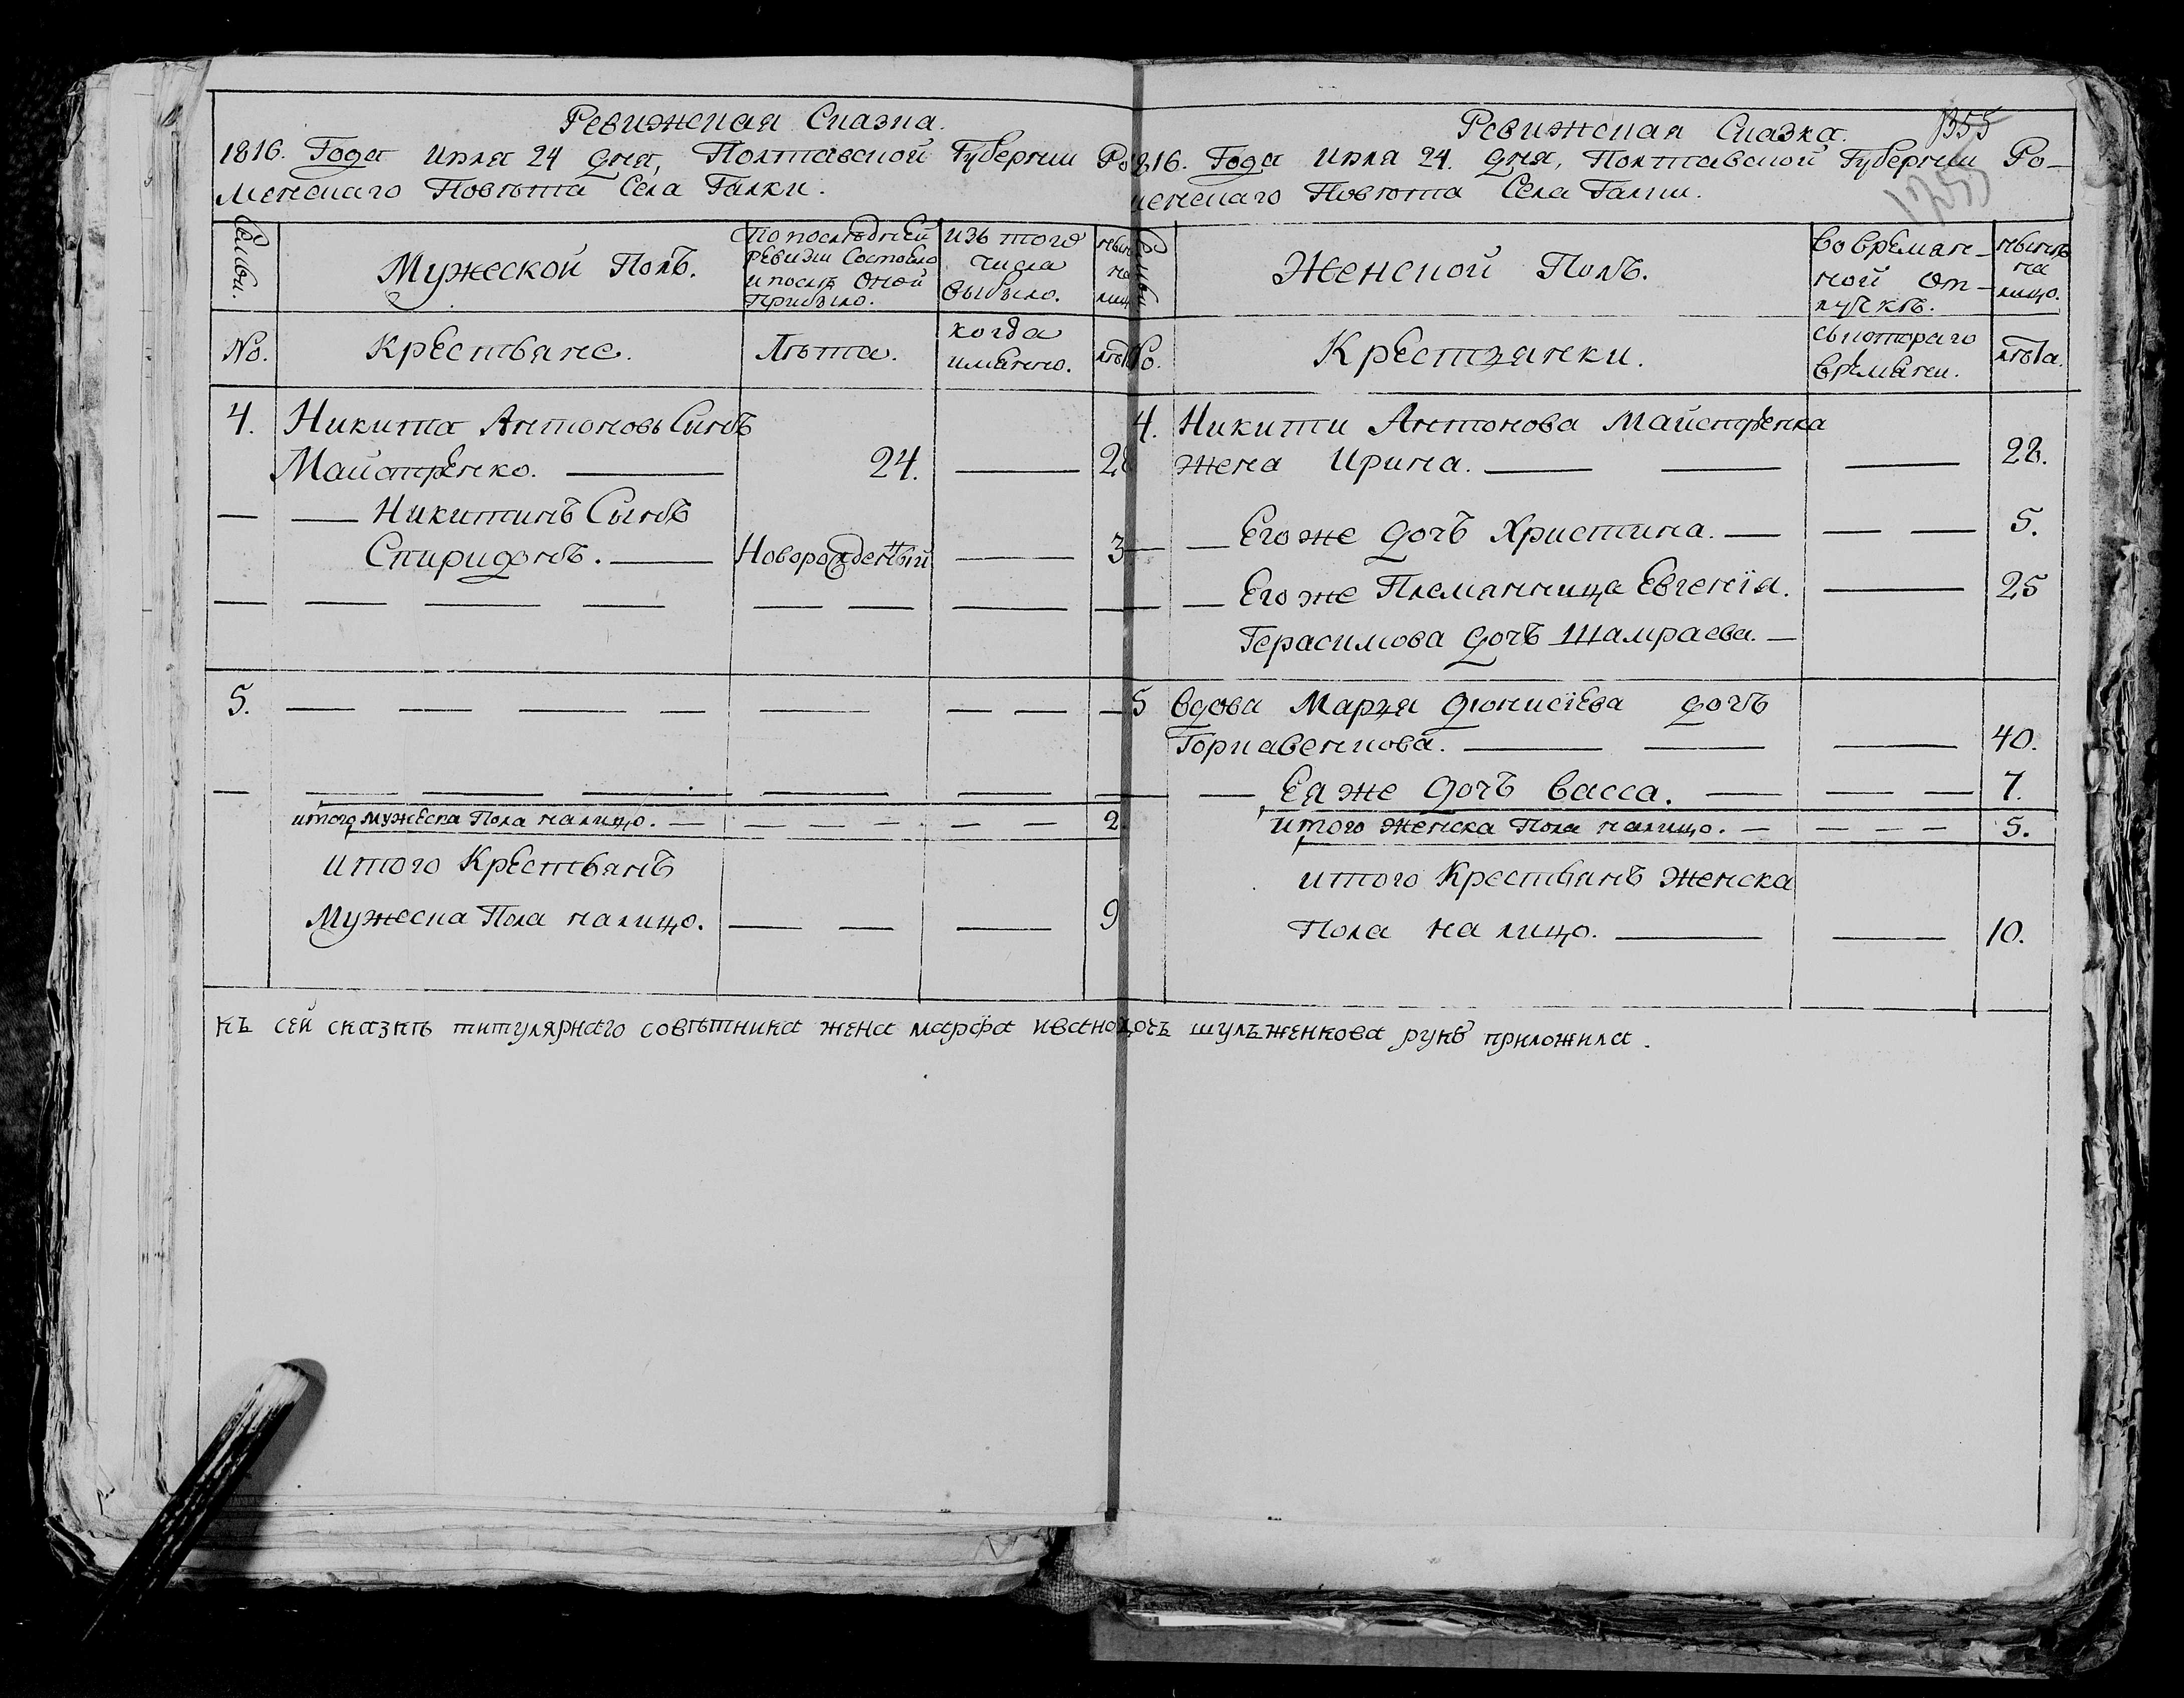 Ревижская Сказка.
1816. Года Июля 24 дня, Полтавской Губернии Ро
менскаго Повѣта Села Галки.
Семьи.
Мужеской Полъ.
По последней
ревизии Состояло
и послѣ Оной
прибыло.
изъ того
числа
выбыло.
ныне
на
лицо
No.
Крестьяне.
Лѣта.
когда
имянно.
лѣта
4. Никита Антоновъ Сынъ
Майстренко. — 24. — 28
— — Никитинъ Сынъ
Спиридонъ. — Новорожденный — 3
5. — — — — — — —
итого мужеска Пола налицо. — — — — 2.
итого Крестьянъ
Мужеска Пола налицо. — — — 9
Ревижская Сказка.
1355
1816. Года Июля 24. дня, Полтавской Губернии Ро—
менскаго Повѣта Села Галки.
1255
Семьи
Женской Полъ.
Во времян—
ной От—
лучкѣ.
нынѣ
на
лицо.
No.
Крестьянки.
съ котораго
времѣни.
лѣта.
4. Никити Антонова Майстренка
жена Ирина. — — — 28.
— — Его же дочъ Христина. — — — 5.
— Его же Племянница Евгенїя. — 25
Герасимова дочъ Шамраева. —
5 Вдова Марья Дионисїева дочъ
Горкавенкова. — — — 40.
— Ея же дочъ Васса. — — — 7.
итого Женска Пола налицо. — — — — 5.
итого Крестьянъ Женска
Пола на лицо. — — 10.
къ сей сказкѣ титулярнаго совѣтника жена марфа иванодочъ шульженкова руку приложила.